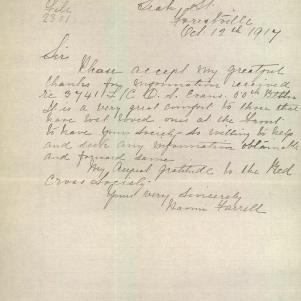 File
2301
Leah St
Forestville
Oct 12th 1917
Sir
Please accept my greatful
thanks for information received
re 2741 L/C O. S. Evans. 50th Bttn
It is a very great comfort to those that
have lost loved ones at the Front
to have your Society so willing to help
and seek any information obtainable
and forward same
My August gratitude to the Red
Cross Society.
Yours very sincerely
Farrell